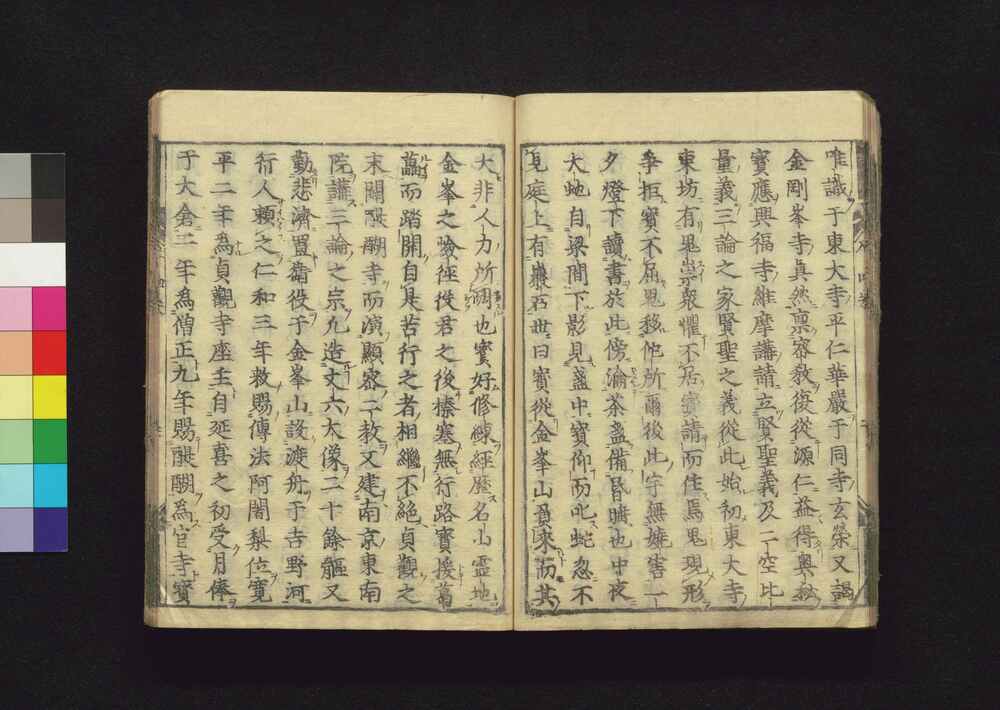 唯識于東大寺平仁華嚴于同寺玄榮又謁
金剛峯寺眞然稟密敎復從源仁益得奥秘
寶應興福寺維摩講請立賢聖義及二空比
量義三論之家賢聖之義從此始初東大寺
東坊有鬼祟衆懼不居寶請而住焉鬼現形
爭拒寶不屈鬼移他所爾後此宇無嬈害一
夕燈下讀書於此傍瀹茶盞備昏曠也中夜
大虵自梁間下影見盞中寶仰而叱蛇忽不
見庭上有巖石世曰寶從金峯山負來而其
大非人力所調也寶好修練經歷名山霊地
金峯之嶮徑役君之後榛塞無行路寶援葛
藟而踏開自是苦行之者相繼不絶貞觀之
末開醍醐寺而演顯密二教又建南京東南
院講三論之宗凡造丈六大像二十餘軀又
勤悲濟置衛役于金峯山設渡舟于吉野河
行人頼之仁和三年敕賜傳法阿闍梨位寛
平二年為貞觀寺座主自延喜之初受月俸
于大倉二年為僧正九年賜醍醐為官寺寶